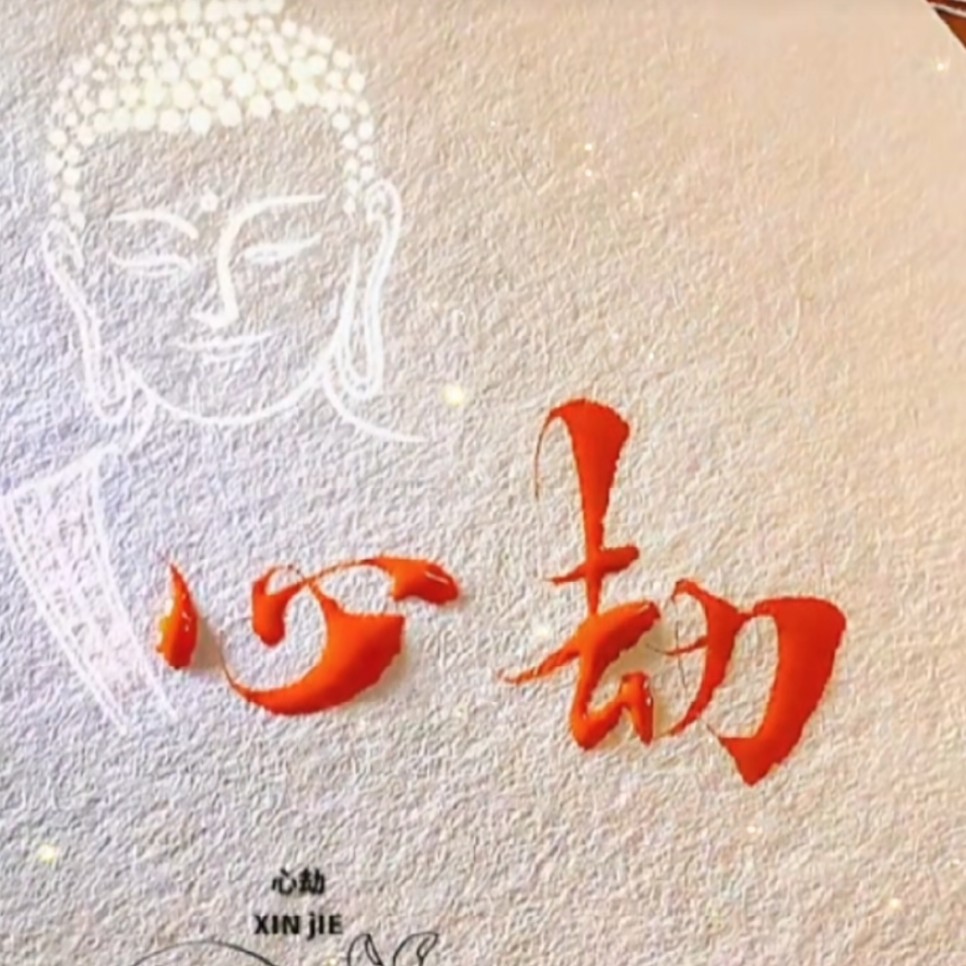 心劫
心劫
XIN jIE